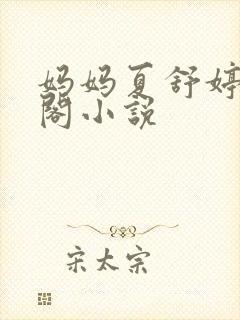 妈妈夏舒婷
閣小說
宋太宗